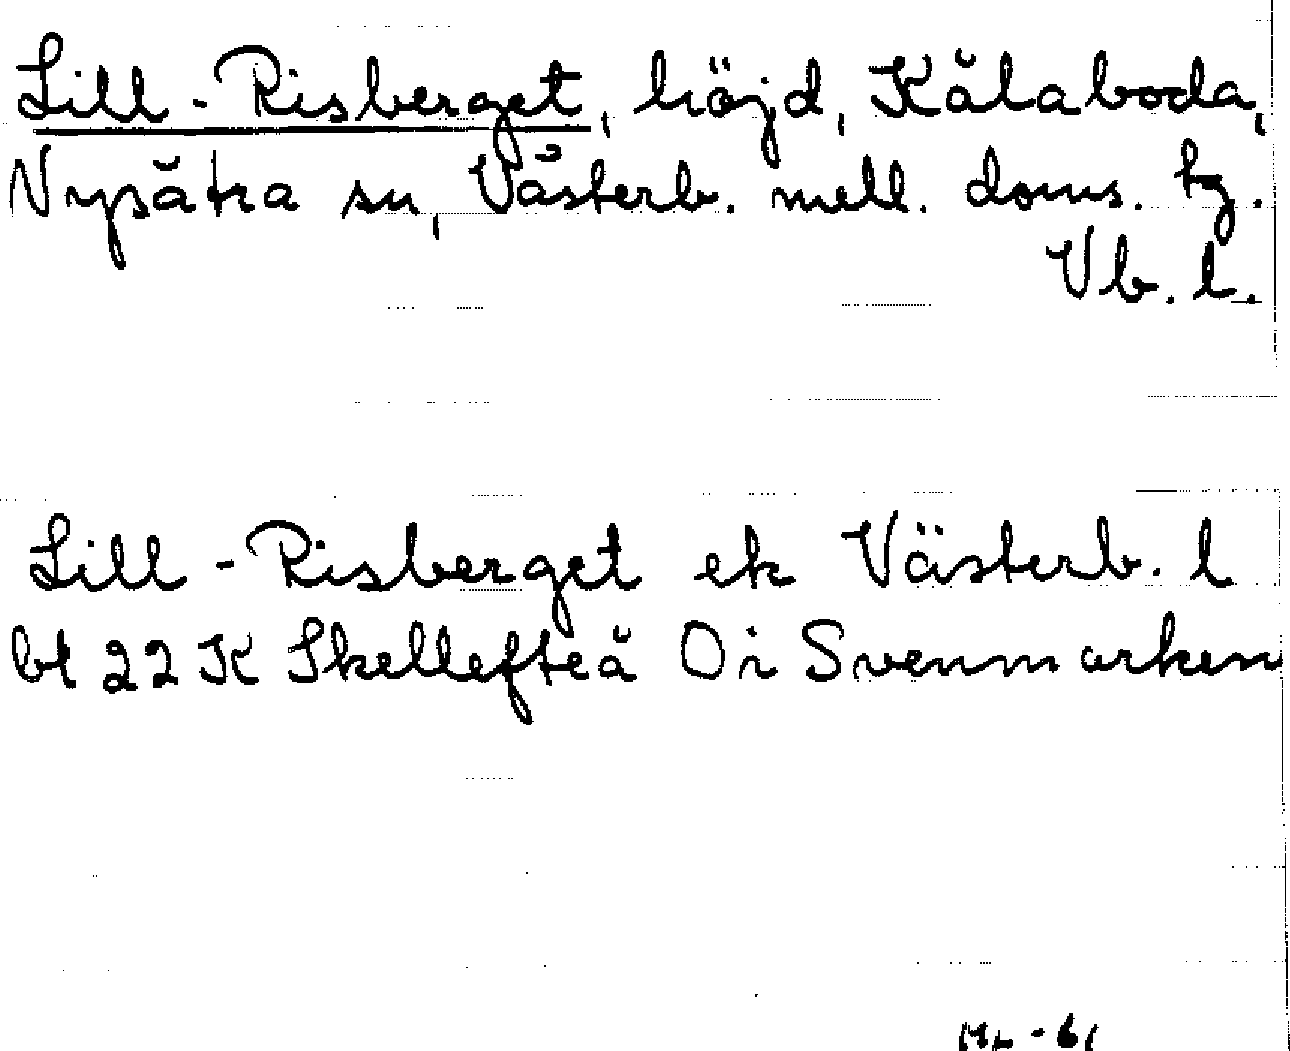 Lill-Risberget, höjd, Kålaboda,
Nysätra sn, Västerb. mell. doms. tg.
Vb. l.
Lill-Risberget ek Västerb. l
bl 22 K Skellefteå Oi Svenmarken